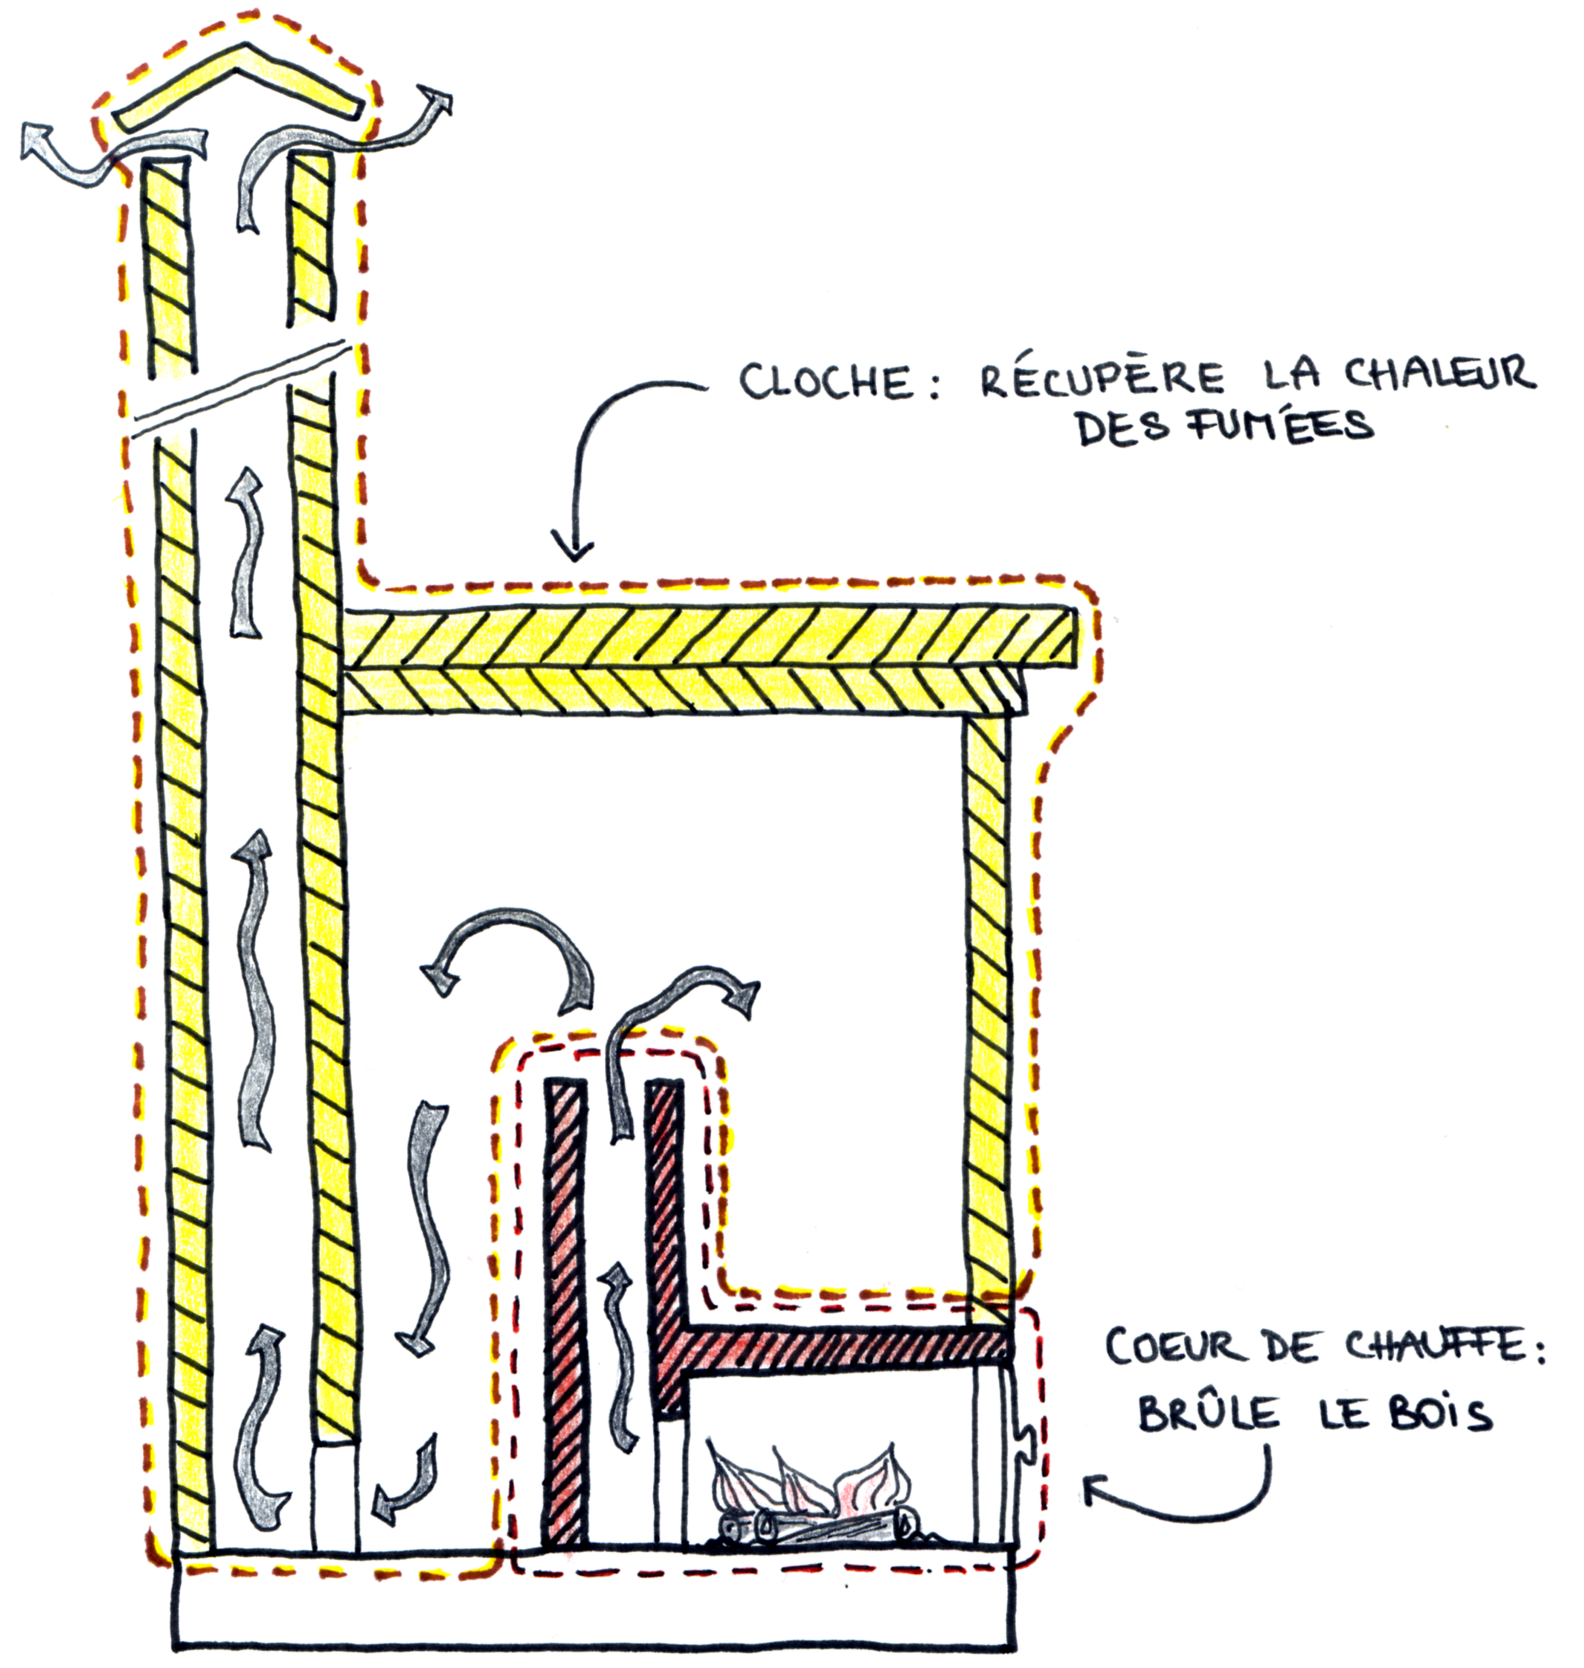 CLOCHE : RÉCUPÈRE LA CHALEUR
DES FUMÉES
COEUR DE CHAUFFE :
BRÛLE LE BOiS